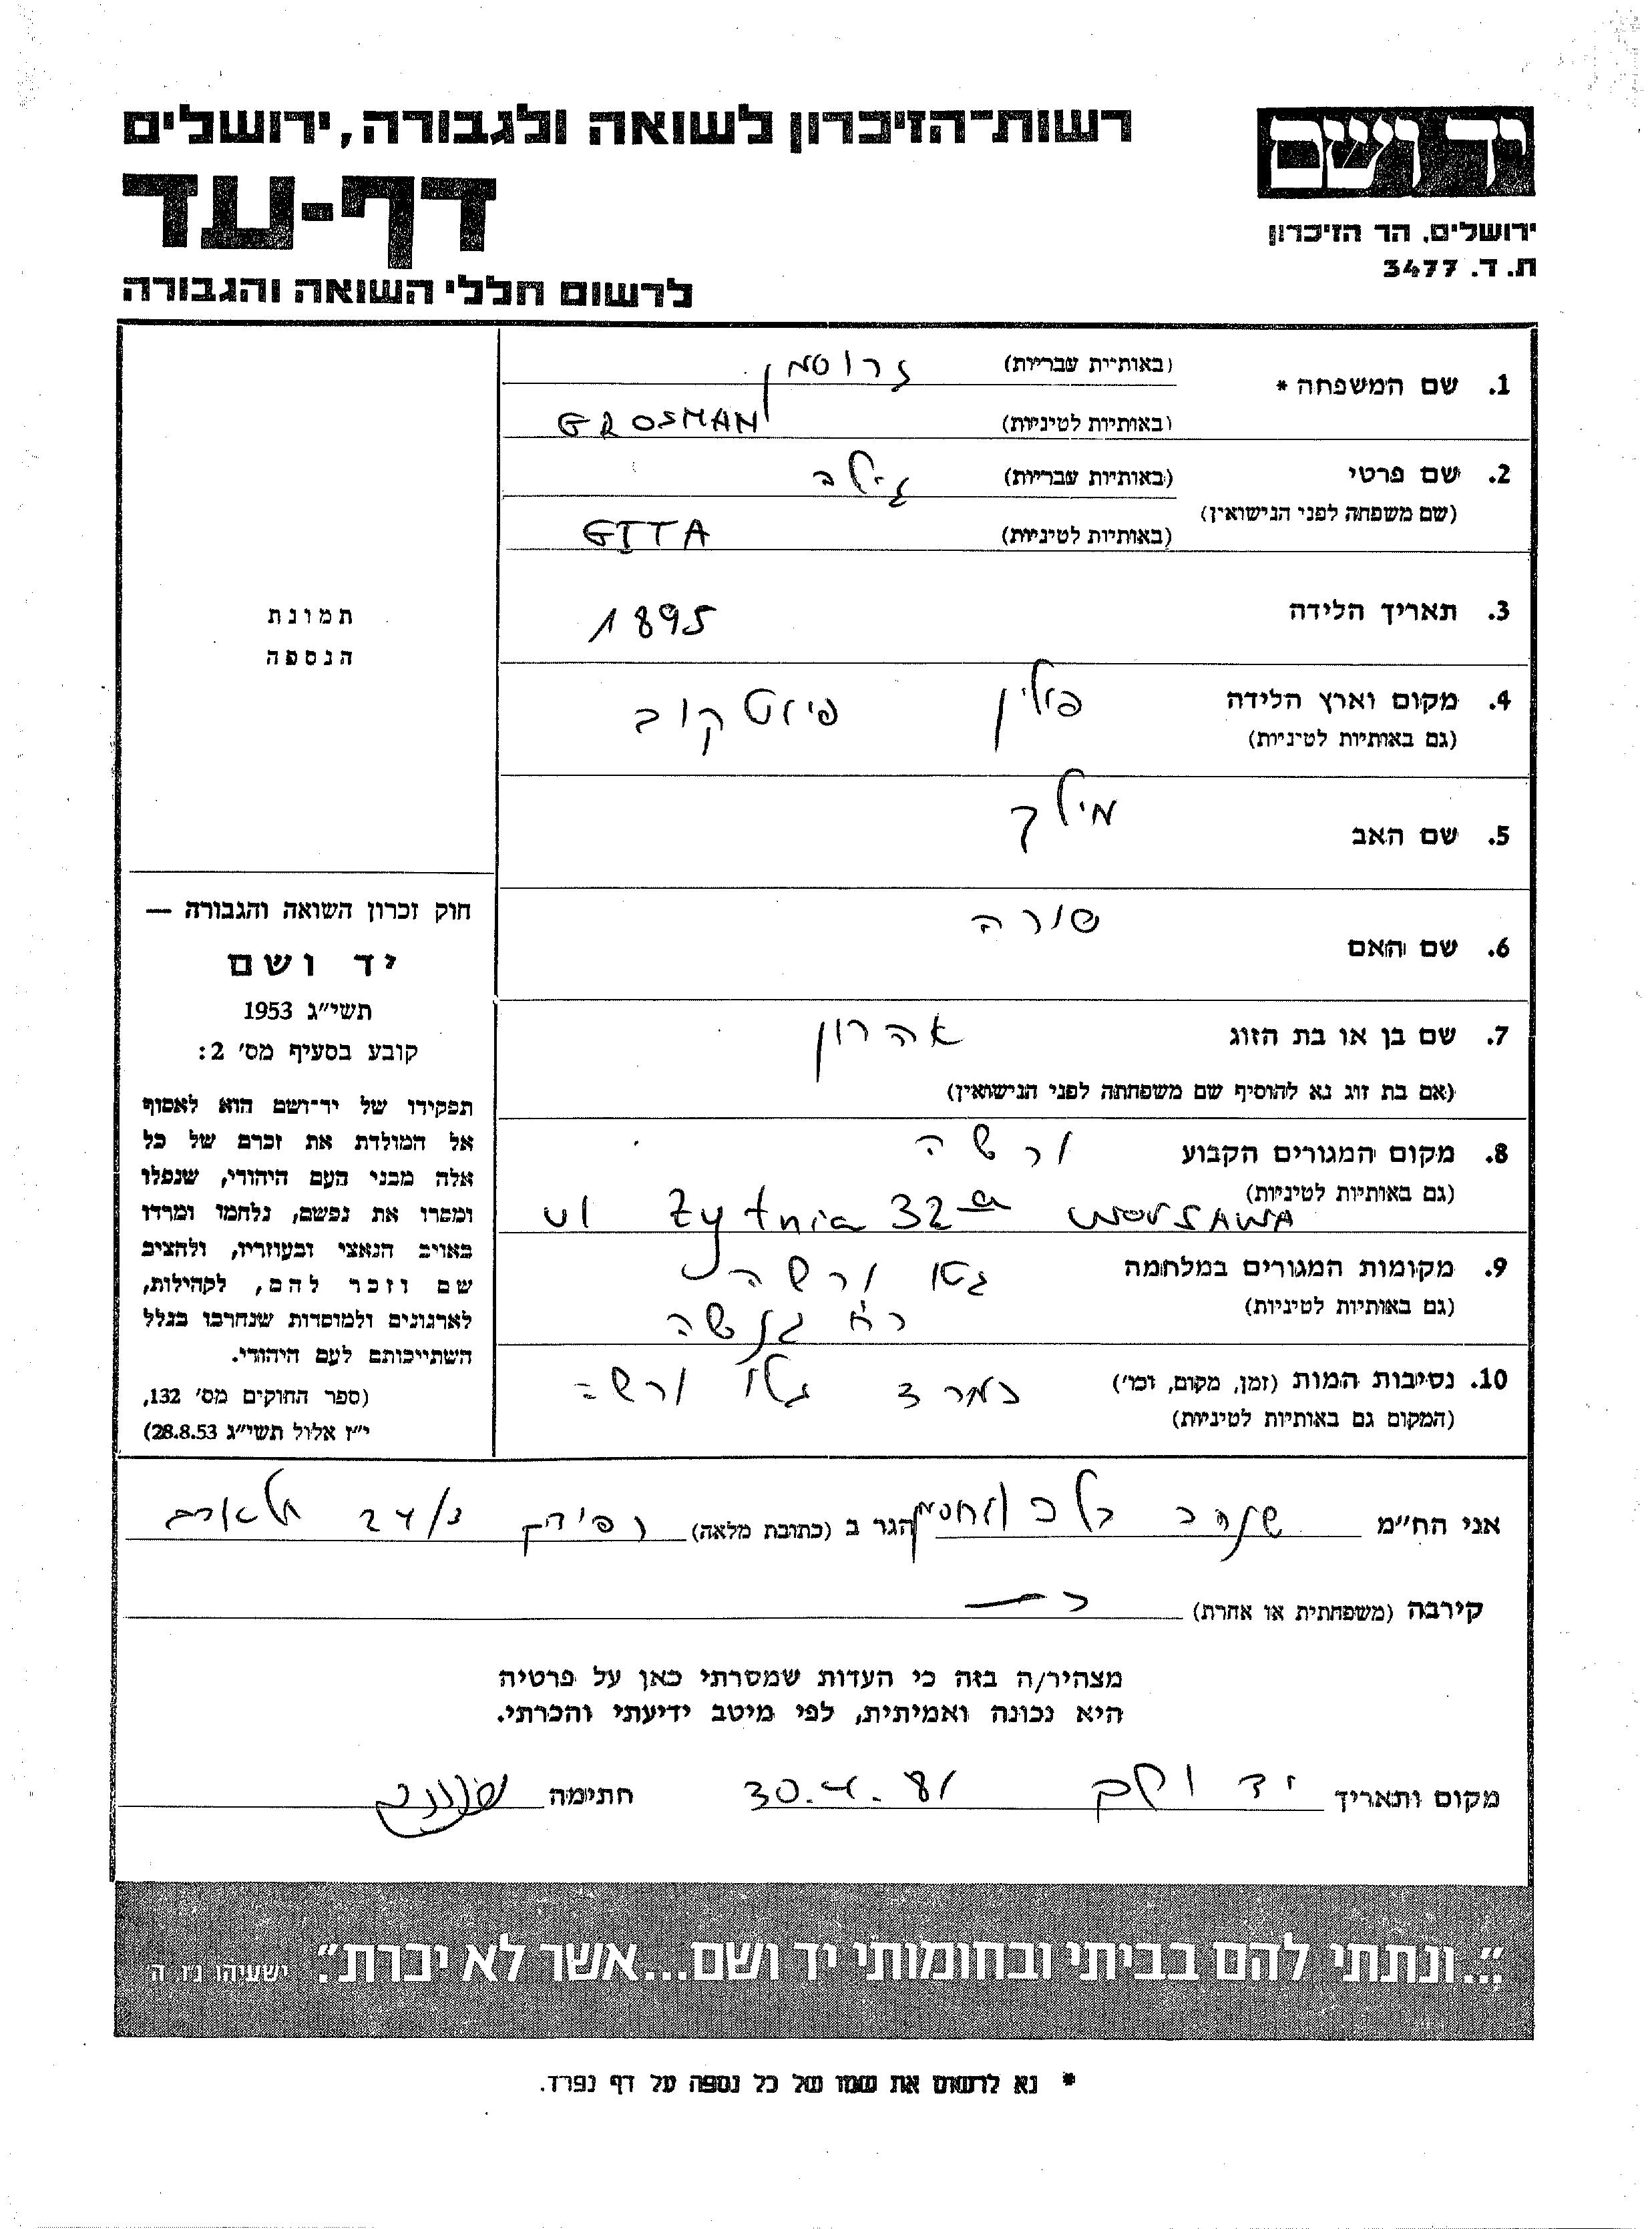 רשות־הזיכרון לשואה ולגבורה, ירושלים
דף-עד
לרשום חללי השואה והגבורה
יד ושם
ירושלים, הר הזיכרון
ת. ד. 3477
1. שם המשפחה * (באותיות עבריות) גרוסמן
(באותיות לטיניות) GROSMAN
2. שם פרטי (באותיות עבריות)
(שם משפחה לפני הנישואין)
(באותיות לטיניות) GITTA
3. תאריך הלידה 1895
4. מקום וארץ הלידה פולין פיוטקוב
(גם באותיות לטיניות)
5. שם האב מילך
6. שם האם שורה
7. שם בן או בת הזוג אהרון
(אם בת זוג נא להוסיף שם משפחתה לפני הנישואין)
8. מקום המגורים הקבוע ורשה
(גם באותיות לטיניות) ul Zytnia 32a
9. מקומות המגורים במלחמה גטו ורשה
(גם באותיות לטיניות)
10. נסיבות המות (זמן, מקום, וכו') במרד גטו ורשה
(המקום גם באותיות לטיניות)
תמונת
הנספה
חוק זכרון השואה והגבורה —
יד ושם
תשי"ג 1953
קובע בסעיף מס' 2:
תפקידו של יד־ושם הוא לאסוף
אל המולדת את זכרם של כל
אלה מבני העם היהודי, שנפלו
ומסרו את נפשם, נלחמו ומרדו
באויב הנאצי ובעוזריו, ולהציב
שם וזכר להם, לקהילות,
לארגונים ולמוסדות שנחרבו בגלל
השתייכותם לעם היהודי.
(ספר החוקים מס' 132,
י"ז אלול תשי"ג 28.8.53)
אני הח"מ הגר ב (כתובת מלאה)
קירבה (משפחתית או אחרת) בת
מצהיר/ה בזה כי העדות שמסרתי כאן על פרטיה
היא נכונה ואמיתית, לפי מיטב ידיעתי והכרתי.
מקום ותאריך יד ושם 30.4.81 חתימה
"...ונתתי להם בביתי ובחומותי יד ושם...אשר לא יכרת". ישעיהו נ"ו, ה'
* נא לרשום את שמו של כל נספה על דף נפרד.